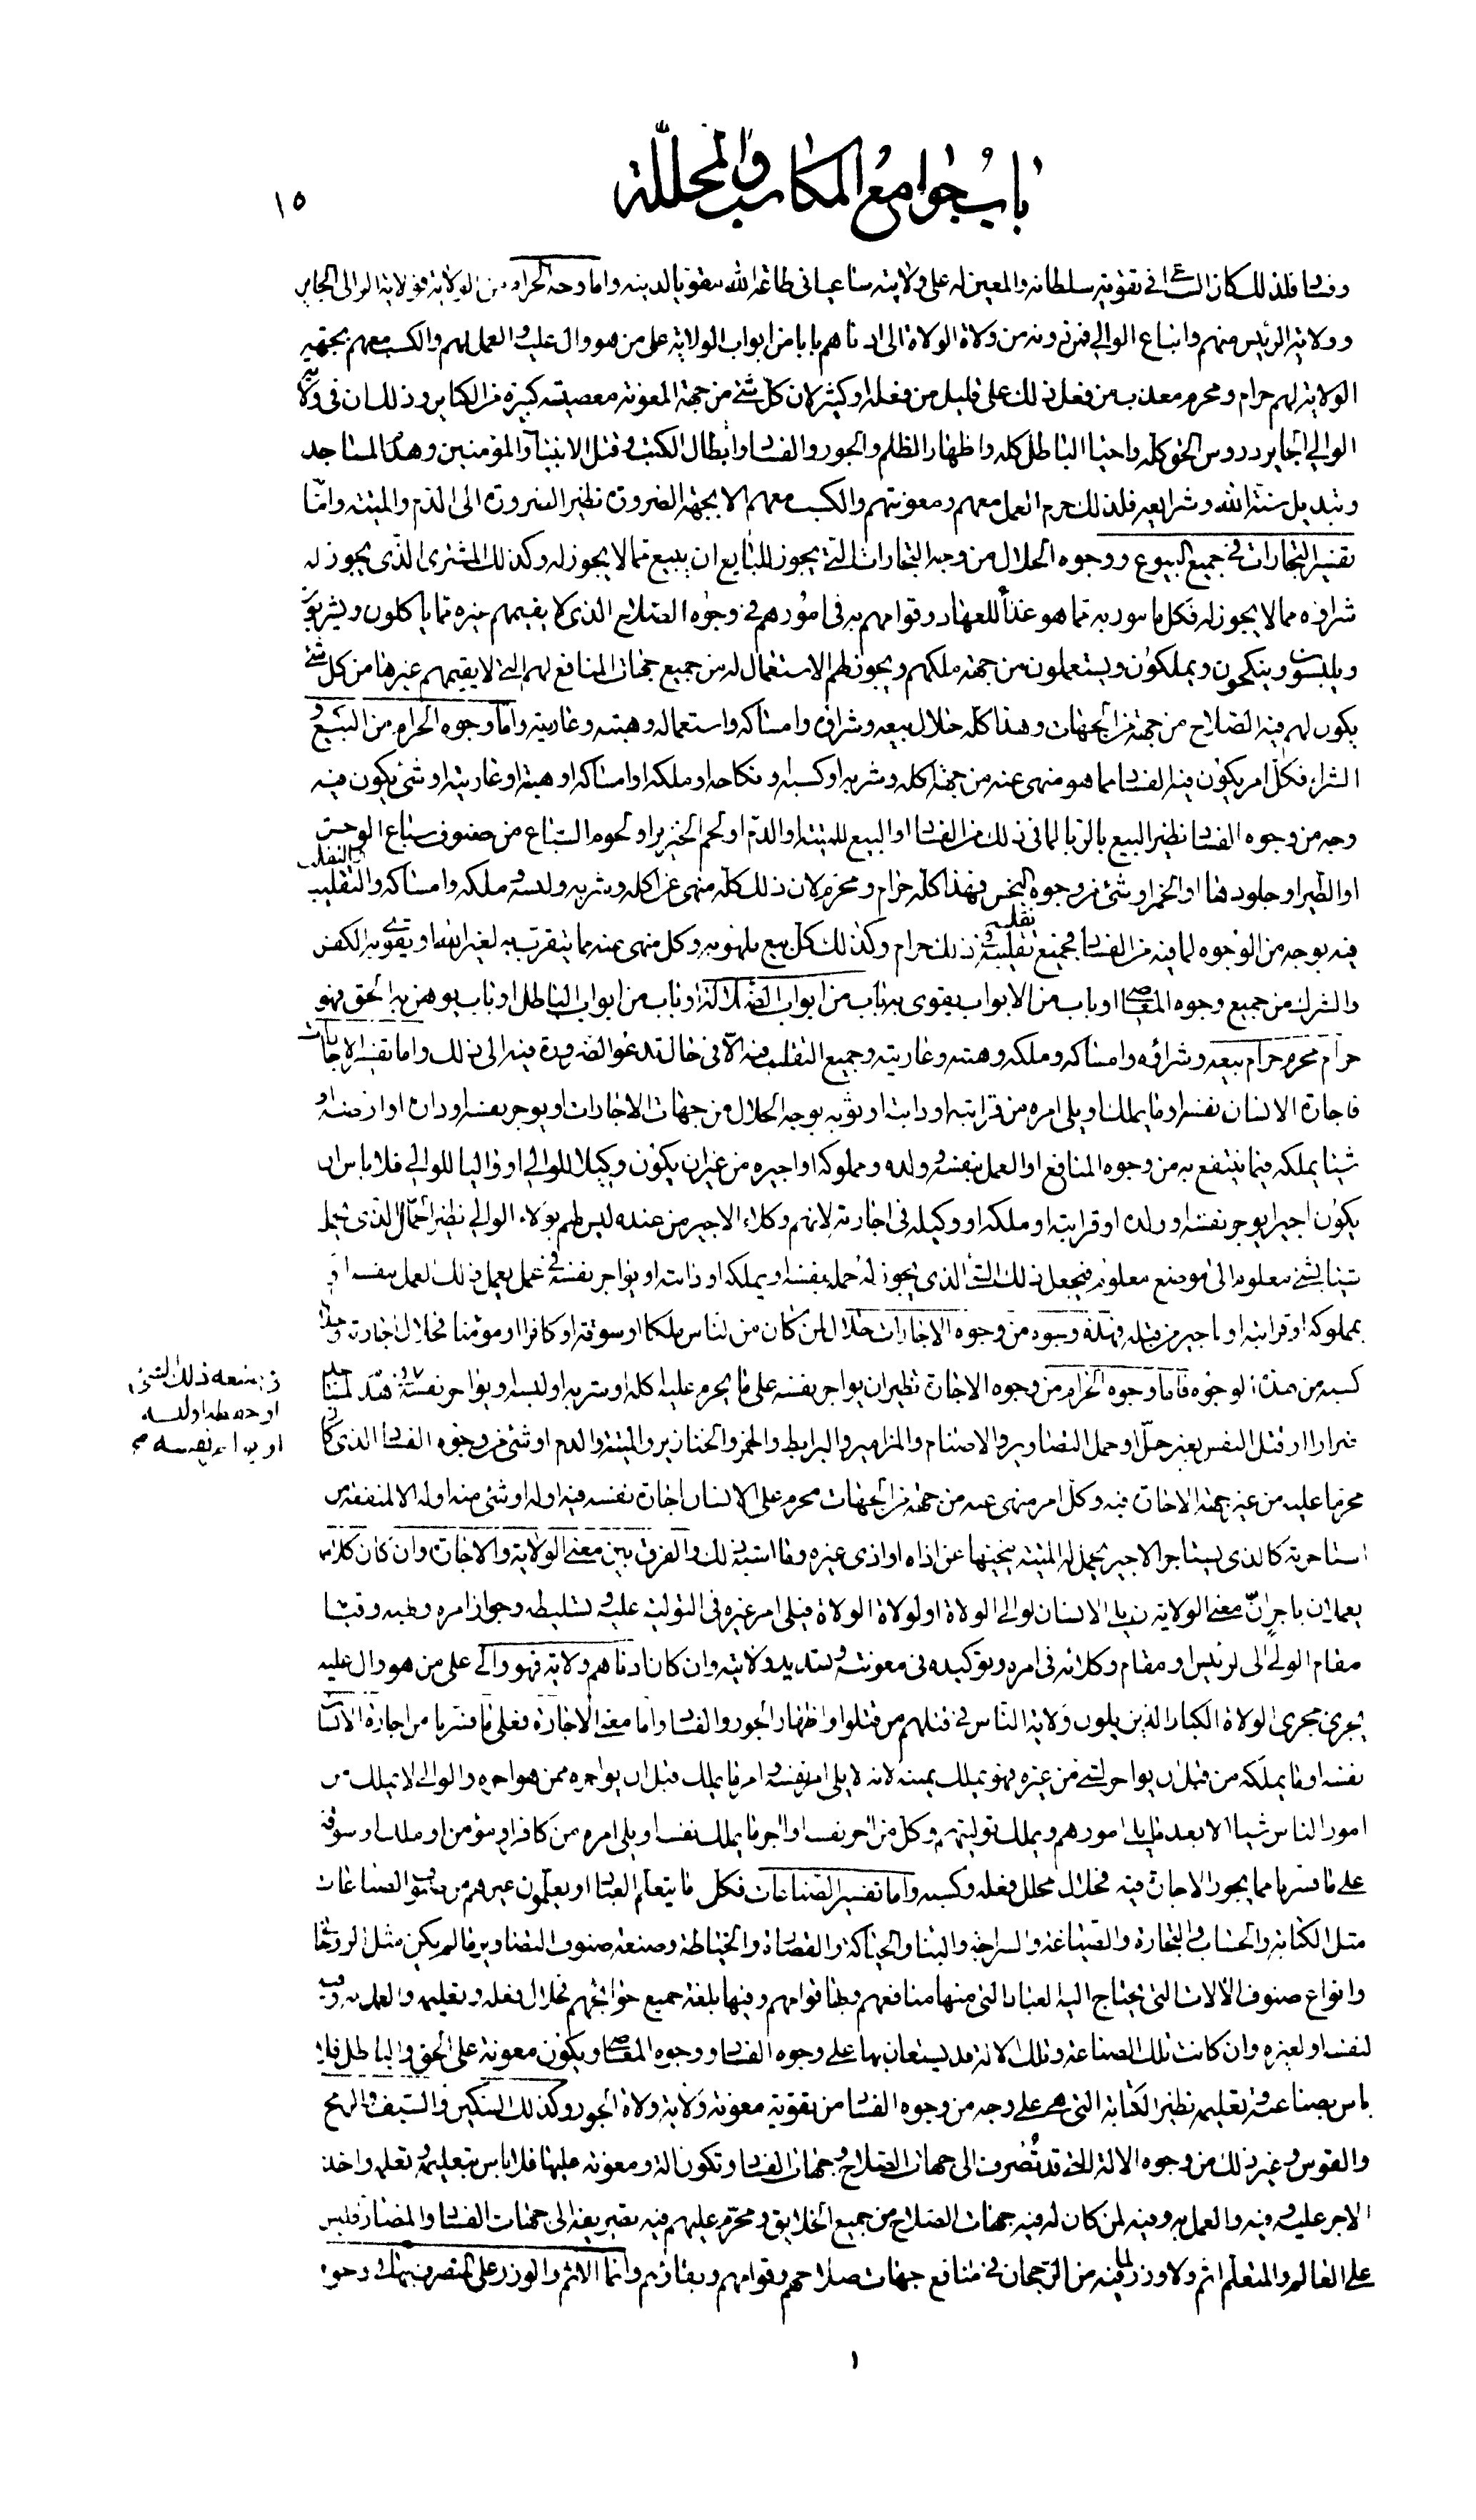 باب جوامع المكاسب والمحللة
١٥
وفسا فلذلك كان الساعى في تقوية سلطانه والمعين له على ولايته ساعيا في طاعة الله مقويا لدينه واما وجه الحرام من الولاية فولاية الوالى الجاير
وولاية الرئيس منهم واتباع الوالي فمن دونه من ولاة الولاة الى ادناهم بابا من ابواب الولاية على من هو وال عليه والعمل لهم والكسب معهم بجهة
الولاية لهم حرام ومحرم معذب من فعل ذلك على قليل من فعله او كثير لان كل شئ من جهة المعونة معصية كبيرة من الكباير وذلك ان في ولاية
الوالي الجاير دروس الحق كله واحياء الباطل كله واظهار الظلم والجور والفسا وابطال الكتب وقتل الانبيآء والمؤمنين وهدم المساجد
وتبديل سنة الله وشرايعه فلذلك حرم العمل معهم ومعونتهم والكسب معهم الا بجهة الضرورة نظير الضرورة الى الدّم والميتة وامّا
تفسير التجارات في جميع البيوع ووجوه الحلال من وجه التجارات التي يجوز للبايع ان يبيع مما لا يجوز له وكذلك المشترى الذّى يجوز له
شراؤه مما لا يجوز له فكل مامور به مما هو غذاً للعباد وقوامهم به فى امورهم في وجوه الصلاح الذى لا يقيمهم غيره مما ياكلون ويشربون
ويلبسون وينكحون ويملكون ويستعملون من جهة ملكهم ويجوز لهم الاستعمال له من جميع جهات المنافع لهم التي لا يقيمهم غيرها من كل شئ
يكون لهم فيه الصلاح من جهة من الجهات وهذا كله حلال بيعه وشراؤه وامساكه واستعماله وهبته وعاريته واما وجوه الحرام من البيع و
الشراء فكلّ امر يكون فيه الفسا مما هو منهى عنه من جهة اكله وشربه او كسبه او نكاحه او ملكه او امساكه او هبته او عاريته او شئ يكون فيه
وجه من وجوه الفسا نظير البيع بالربا لما في ذلك من الفسا او البيع للميتة او الدّم او لحم الخنزير او لحوم السّباع من صنوف سباع الوحش
والتقلب
او الطّير او جلودها او الخمر او شئ من وجوه النجس فهذا كله حرام ومحرم لان ذلك كله منهى عن اكله وشربه ولبسه وملكه وامساكه والتقليب
تقلبه
فيه بوجه من الوجوه لما فيه من الفسا فجميع تقليبه في ذلك حرام وكذلك كل بيع ملهو به وكل منهى عنه مما يتقرّب به لغير الله او يقوى به الكفر
والشرك من جميع وجوه المعاصى او باب من الابواب يقوى به باب من ابواب الضّلالة او باب من ابواب الباطل او باب يوهن به الحق فهو
حرام محرم حرام بيعه وشراؤه وامساكه وملكه وهبته وعاريته وجميع التقلب فيه الّا في حال تدعو الضرورة فيه الى ذلك واما تفسير الاجارات
فاجارة الانسان نفسه او ما يملك او يلى امره من قرابته او دابته او ثوبه بوجه الحلال من جهات الاجارات او يوجر نفسه او داره او ارضه او
شيئا يملكه فيما ينتفع به من وجوه المنافع او العمل بنفسه وولده ومملوكه او اجيره من غير ان يكون وكيلا للوالي او واليا للوالي فلا باس ان
يكون اجيرا يوجر نفسه او ولده او قرابته او ملكه او وكيله في اجارته لانهم وكلاء الاجير من عنده ليس لهم بولاء الوالي نظير الحمّال الذى يحمل
شيئا بشئ معلوم الى موضع معلوم فيجعل ذلك الشئ الذى يجوز له حمله بنفسه او يملكه او دابته او يواجر نفسه في عمل يعمل ذلك العمل بنفسه او
بمملوكه او قرابته او باجير من قبله فهذه وجوه من وجوه الاجارات حلال لمن كان من الناس ملكا او سوقة او كافرا او مؤمنا فحلال اجارته وحلال
كسبه من هذه الوجوه فاما وجوه الحرام من وجوه الاجارة نظير ان يواجر نفسه على ما يحرم عليه اكله او شربه او لبسه او يواجر نفسه في هدم المساجد
ضرارا او قتل النفس بغير حلّ او حمل التصاوير والاصنام والمزامير والبرابط والخمر والخنازير والميتة والدم او شئ من وجوه الفسا الذى كان
محرما عليه من غير جهة الاجارة فيه وكلّ امر منهى عنه من جهة من الجهات محرم على الانسان اجارة نفسه فيه او له او شئ منه او له الا لمنفعة من
استاجرته كالذى يستاجر الاجير يحمل له الميتة ينجيها عن اذاه او اذى غيره وما اشبه ذلك والفرق بين معنى الولاية والاجارة وان كان كلاهما
يعملان باجر انّ معنى الولاية ان يلى الانسان لوالى الولاة او لولاة الولاة فيلى امر غيره في التولية عليه وتسليطه وجواز امره ونهيه وقيامه
مقام الولي الى الرئيس او مقام وكلائه فى امره وتوكيده فى معونته وتسديد ولايته وان كان ادناهم ولاية فهو والي على من هو وال عليه
يجرى مجرى الولاة الكبار الذين يلون ولاية النّاس في قتلهم من قتلوا واظهار الجور والفسا واما معنى الاجارة فعلى ما فسرنا من اجارة الانسان
نفسه او ما يملكه من قبل ان يواجر لشئ من غيره فهو يملك يمينه لانه لا يلى امر نفسه وامر ما يملك قبل ان يواجره ممن هو اجره والوالي لا يملك من
امور الناس شيئا الا بعد ما يلى امورهم ويملك توليتهم وكل من اجر نفسه او اجر ما يملك نفسه او يلى امره من كافر او مؤمن او ملك او سوقة
على ما فسرنا مما يجوز الاجارة فيه فحلال محلل فعله وكسبه واما تفسير الصّناعات فكل ما يتعلم العباد او يعلّمون غيرهم من صنوف الصناعات
مثل الكتابة والحساب والتجارة والصّياغة والسراجة والبناء والحياكة والقصارة والخياطة وصنعة صنوف التصاوير ما لم يكن مثل الروحانى
وانواع صنوف الآلات التى يحتاج اليه العباد التى منها منافعهم وبها قوامهم وفيها بلغة جميع حوائجهم فحلال فعله وتعليمه والعمل به وفيه
لنفسه او لغيره وان كانت تلك الصناعة وتلك الآلة قد يستعان بها على وجوه الفسا ووجوه المعاصى ويكون معونة على الحق والباطل فلا
باس بصناعته وتعليمه نظير الكتابة التى هى على وجه من وجوه الفسا من تقوية معونة ولاية ولاة الجور وكذلك السكين والسّيف والرمح
والقوس وغير ذلك من وجوه الالة التى قد تُصرف الى جهات الصّلاح وجهات الفسا وتكون الة ومعونة عليها فلا باس بتعليمه وتعلمه واخذ
الاجر عليه وفيه والعمل به وفيه لمن كان له فيه جهات الصلاح من جميع الخلايق ومحرّم عليهم فيه تصريفه الى جهات الفسا والمضار فليس
على العالم والمتعلم اثم ولا وزر لما فيه من الرّجحان في منافع جهات صلاحهم وقوامهم وبقائهم وانّما الاثم والوزر على المتصرف بها في وجوه
ذلك الشئ
١